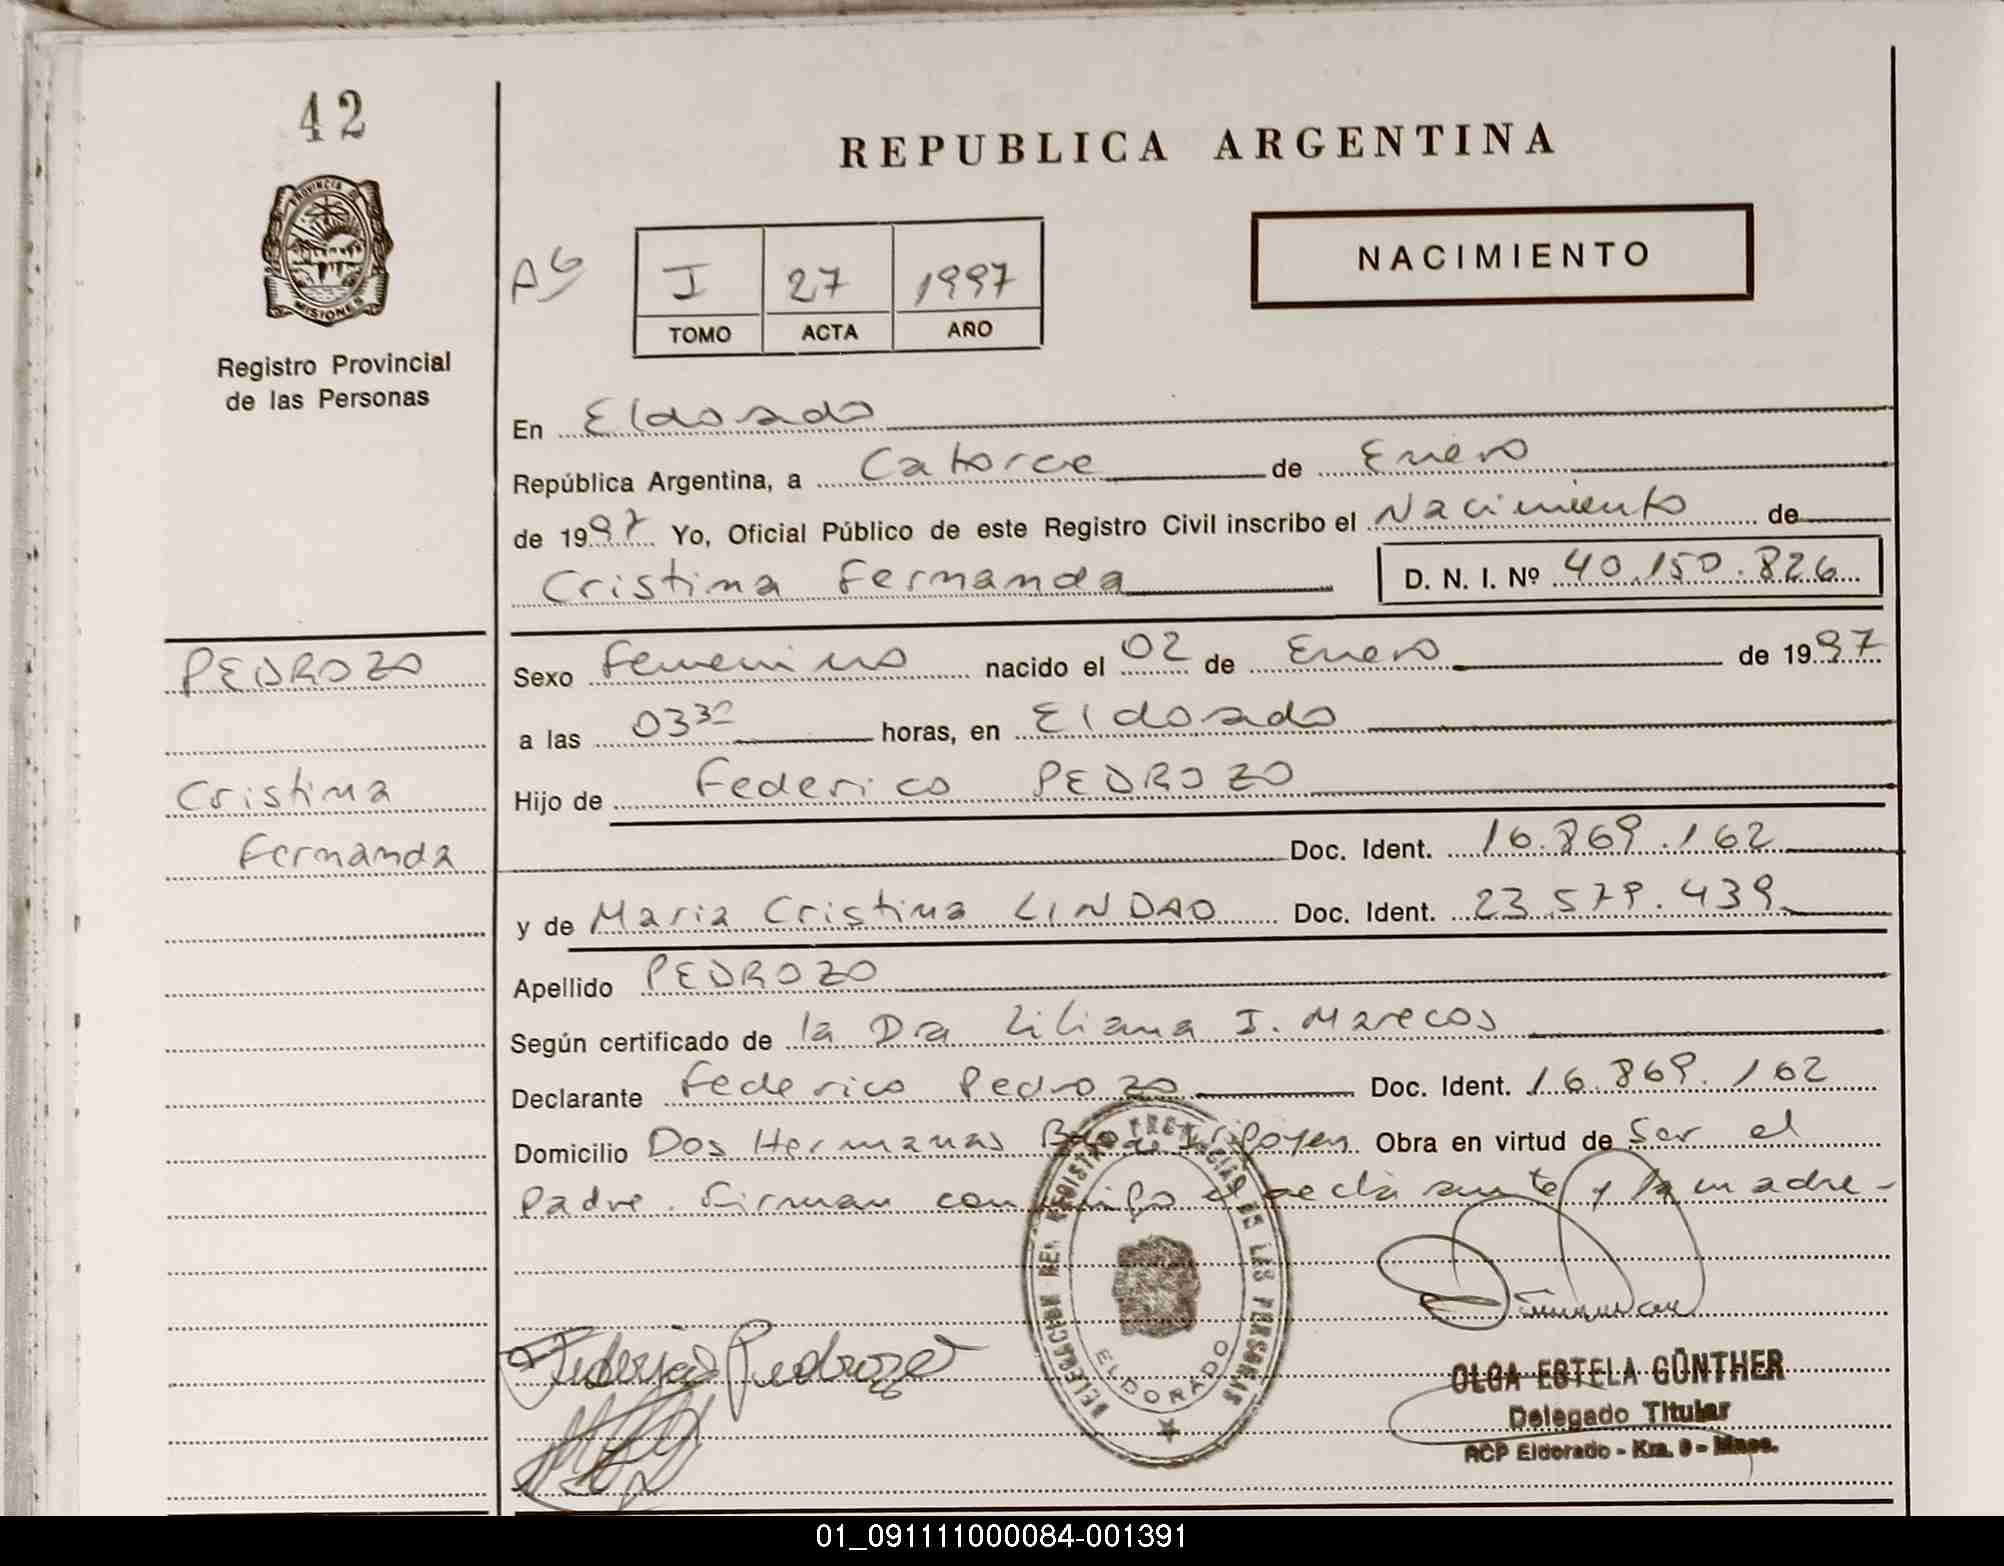 42
PROVINCIA DE
MISIONES
Registro Provincial
de las Personas
REPUBLICA ARGENTINA
NACIMIENTO
A6
I 27 1997
TOMO ACTA AÑO
En Eldorado
República Argentina, a Catorce de Enero
de 1997 Yo, Oficial Público de este Registro Civil inscribo el Nacimiento de
Cristina Fernanda D. N. I. Nº 40.150.826
PEDROZO
Cristina
Fernanda
Sexo Femenino nacido el 02 de Enero de 1997
a las 03 30 horas, en Eldorado
Hijo de Federico PEDROZO
Doc. Ident. 16.869.162
y de Maria Cristina LINDAO Doc. Ident. 23.579.439
Apellido PEDROZO
Según certificado de la Dra Liliana I. Marecos
Declarante Federico Pedrozo Doc. Ident. 16.869.162
Domicilio Dos Hermanas Irigoyen Obra en virtud de Ser el
Padre. Firman conmigo el declarante y la madre-
Federico Pedrozo
DELEGACION DEL REGISTRO PROVINCIAL DE LAS PERSONAS
ELDORADO
OLGA ESTELA GÜNTHER
Delegado Titular
RCP Eldorado - Km. 9 - Mnes.
01_091111000084-001391